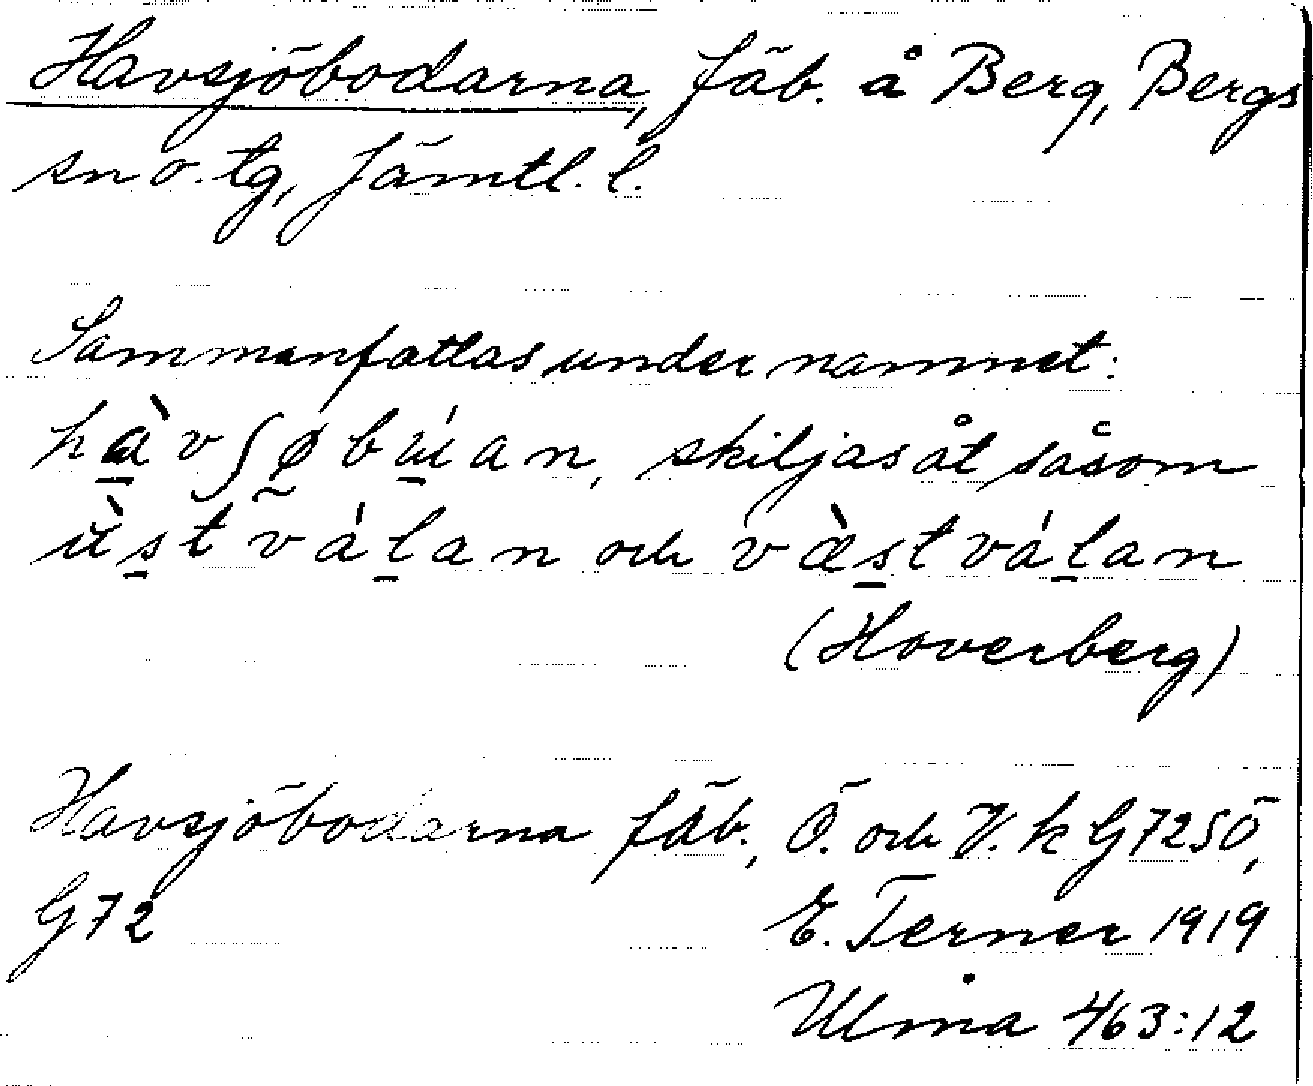 Havsjöbodarna, fäb. å Berg, Bergs
sn o. tg, Jämtl. l.
Sammanfattas under namnet:
hàvʃøbúan, skiljas åt såsom
ùstválan och væ̀stválan
(Hoverberg)
Havsjöbodarna fäb., Ö. och V. k G72SÖ,
G72 E. Terner 1919
Ulma 463:12